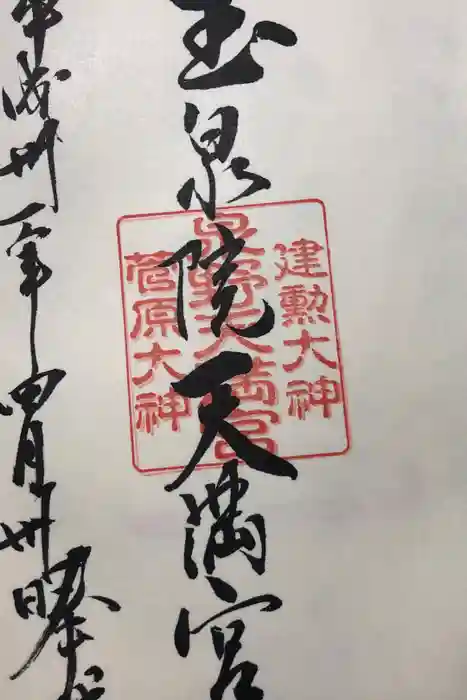 玉泉院天満宮
建勲大神
泉野天満宮
菅原大神
平成卅一年四月卅日奉